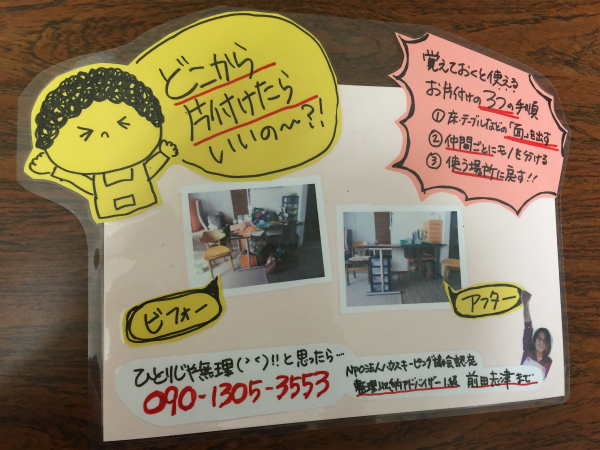 どこから
片付けたら
いいの〜?!
覚えておくと使える
お片付けの3つの手順
①床・テーブルなどの「面」を出す
②仲間ごとにモノを分ける
③使う場所に戻す!!
ビフォー
アフター
ひとりじゃ無理(><)!!と思ったら…
090-1305-3553
NPO法人ハウスキーピング協会認定
整理収納アドバイザー1級 前田志津まで